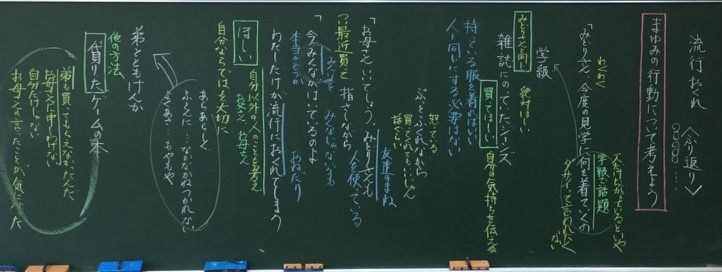 流行おくれ
〈ふり返り〉
まゆみの行動について考えよう
わくわく
「みどりさん、今度の見学に何を着ていくの
学級で話題
ダサイって言われたくない
学級
みどりさんと同じ
絶対ほしい
雑誌にのっていたジーンズ
買ってほしい
自分の気持ちを伝える
持っている服を着ればいい
人と同じにする必要はない
怒ってる
ぶっとふくれながら
買ってくれてもいいじゃん
「お母さん、いいでしょう。みどりさんも
友達のまね
人を使っている
最近買った
指さしながら
「今みんながはいているのよ
えっ
みんなって、でも
本当かどうか
おねだり
わたしだけが流行におくれてしまう
ほしい
自分以外の人のことを考え
友だち お母さん
自分ならではを大切に
あらあらしく
ふくあさ… おやすみ
弟とともけんか
他の方法
借りたゲームの本
弟も買ってもらえなかったんだ
お母さんに申しわけない
自分だけじゃない
お母さんの言ったことが気になった